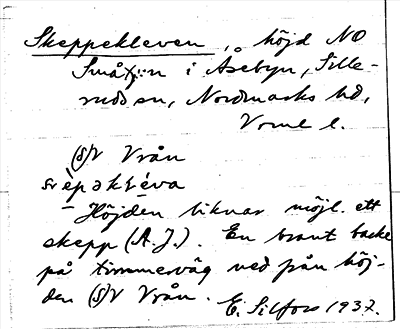 Skeppekleven, höjd NO
Småtjärn i Åsebyn, Sille-
rudsn, Nordmarks hd,
Vrml l.
(S)V Vrån
Höjden liknar möjl. ett
skepp (A.J.). En brant backe
på timmerväg ned från höj-
den (S)V Vrån.
E. Silfors 1937.